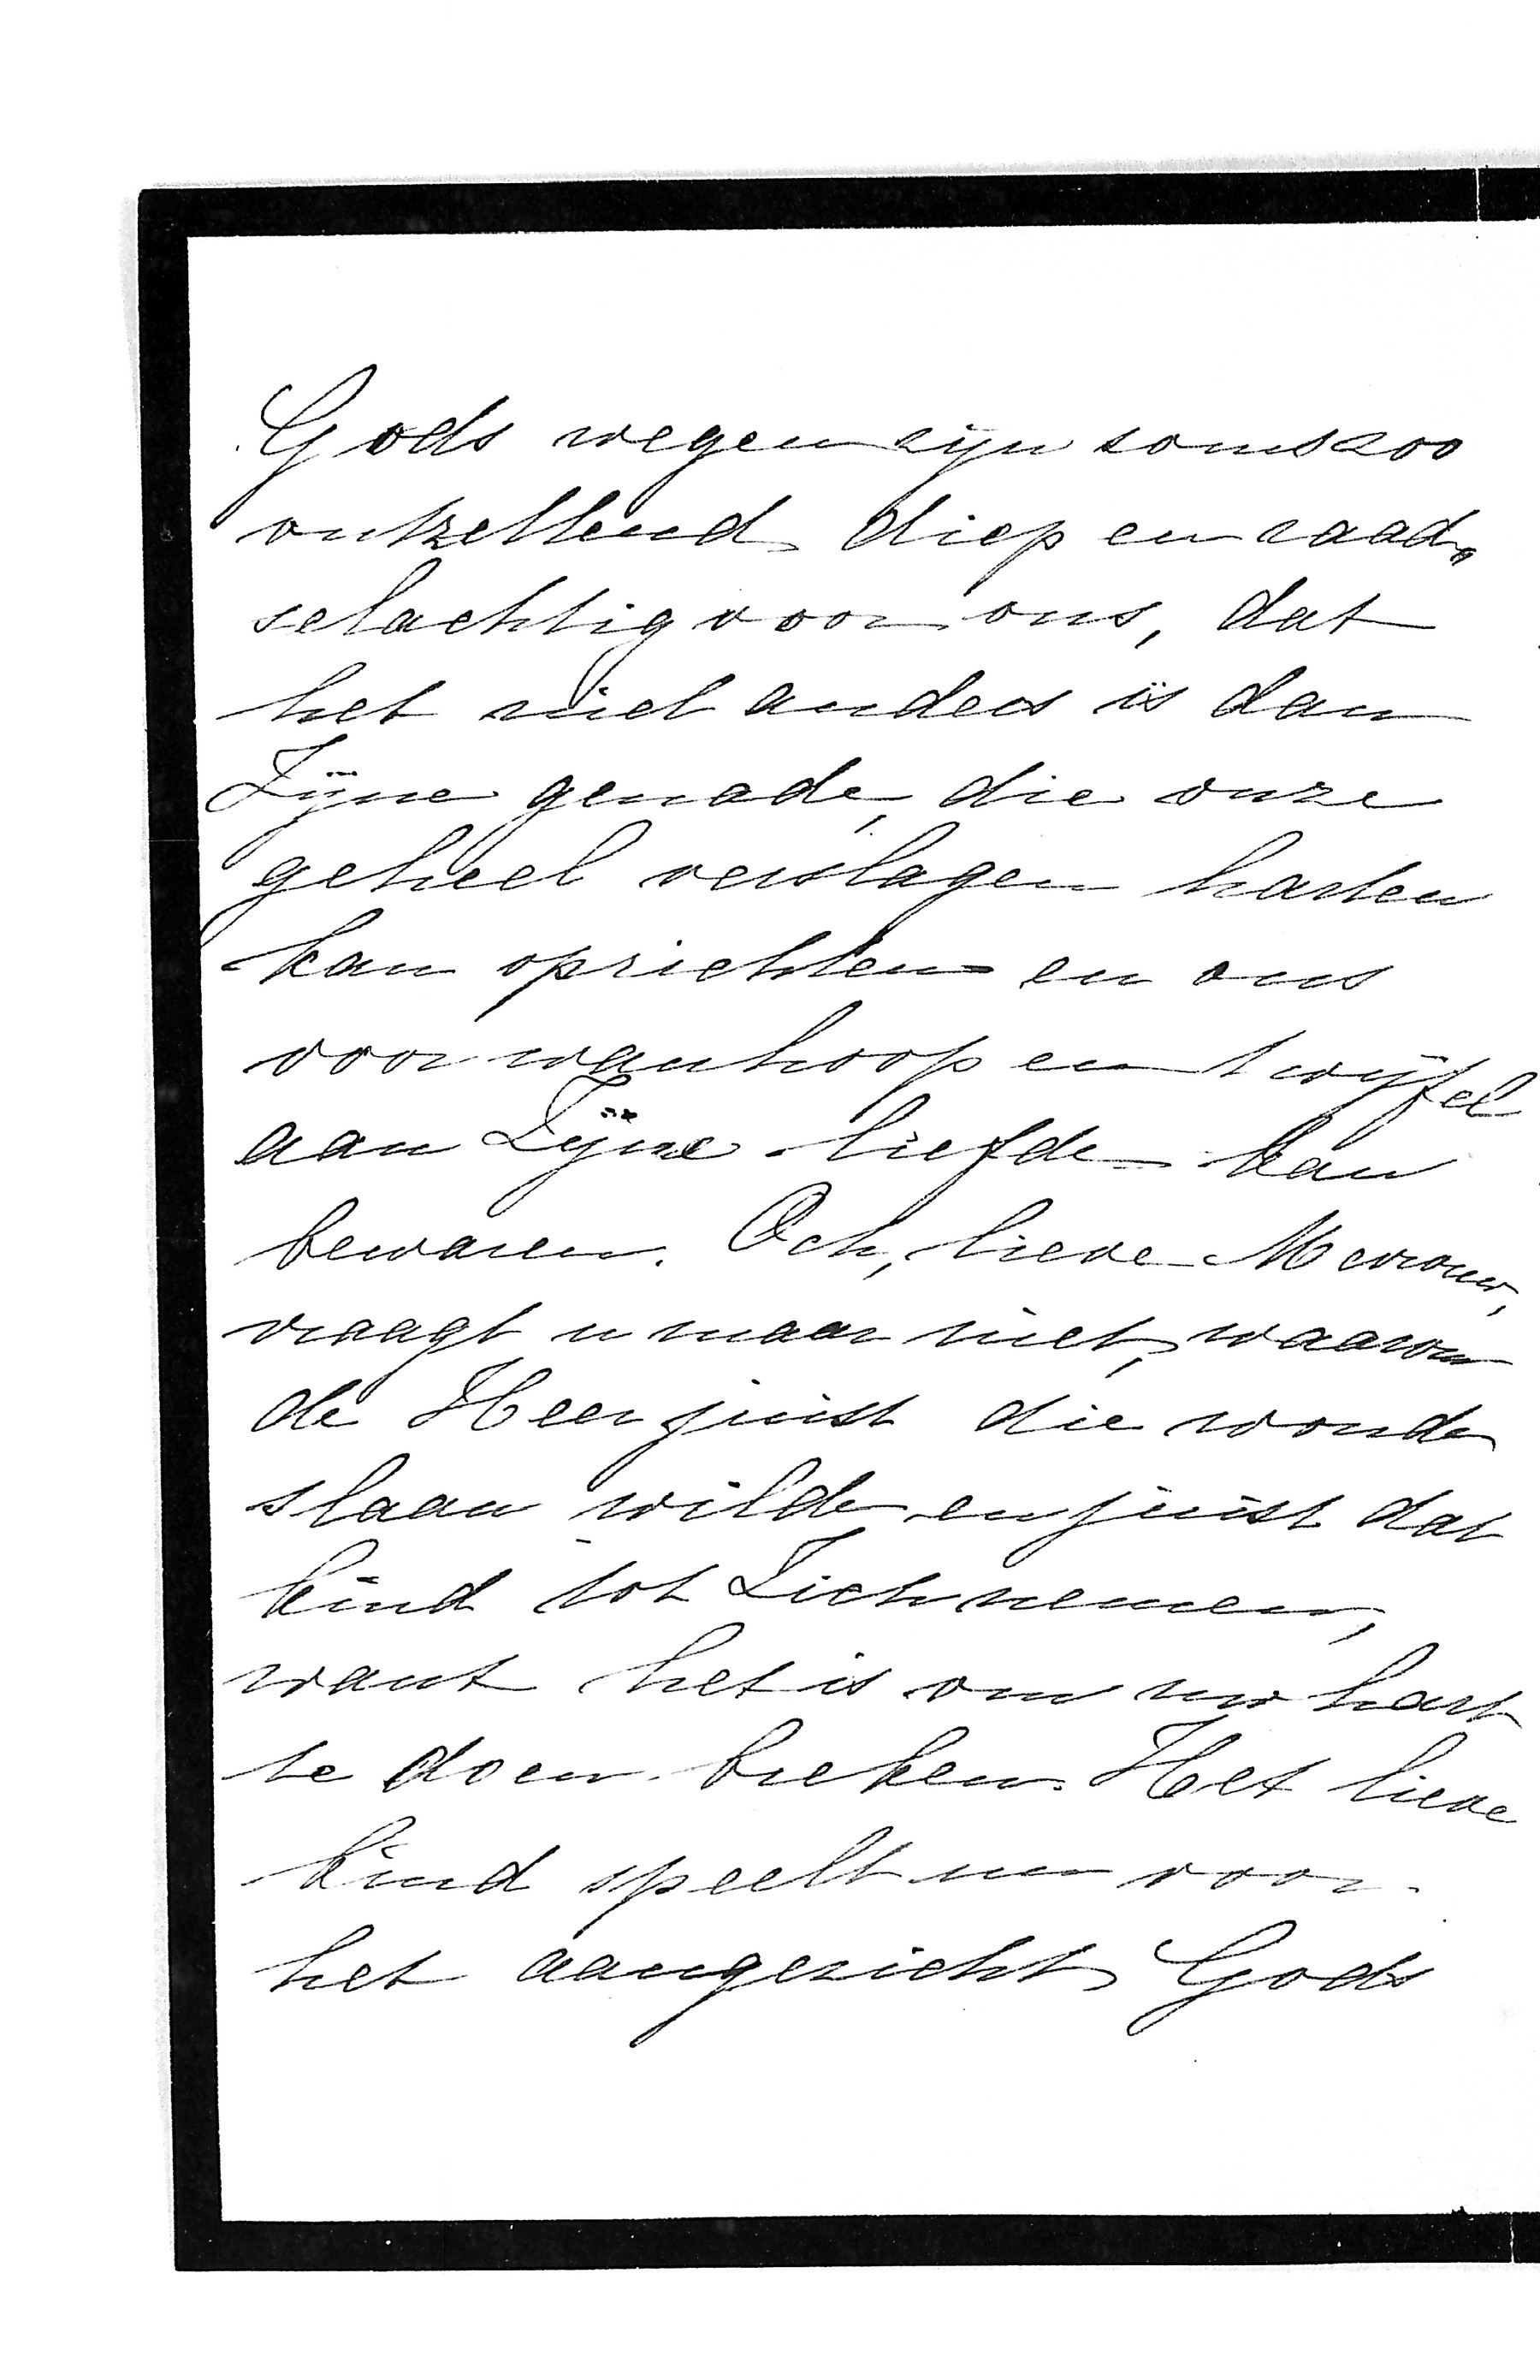 Gods wegen zijn soms zoo
ontzettend diep en raad„
selachtig voor ons, dat
het niet anders is dan
Zijne genade, die onze
geheel verslagen harten
kan oprichten en ons
voor wanhoop en twijfel
aan Zijne liefde kan
bewaren. Och, lieve Mevrouw,
vraagt u maar niet, waarom
de Heer juist die wonde
slaan wilde en juist dat
kind tot Zich nemen,
want het is om uw hart
te doen breken. Het lieve
kind speelt nu voor
het aangezicht Gods